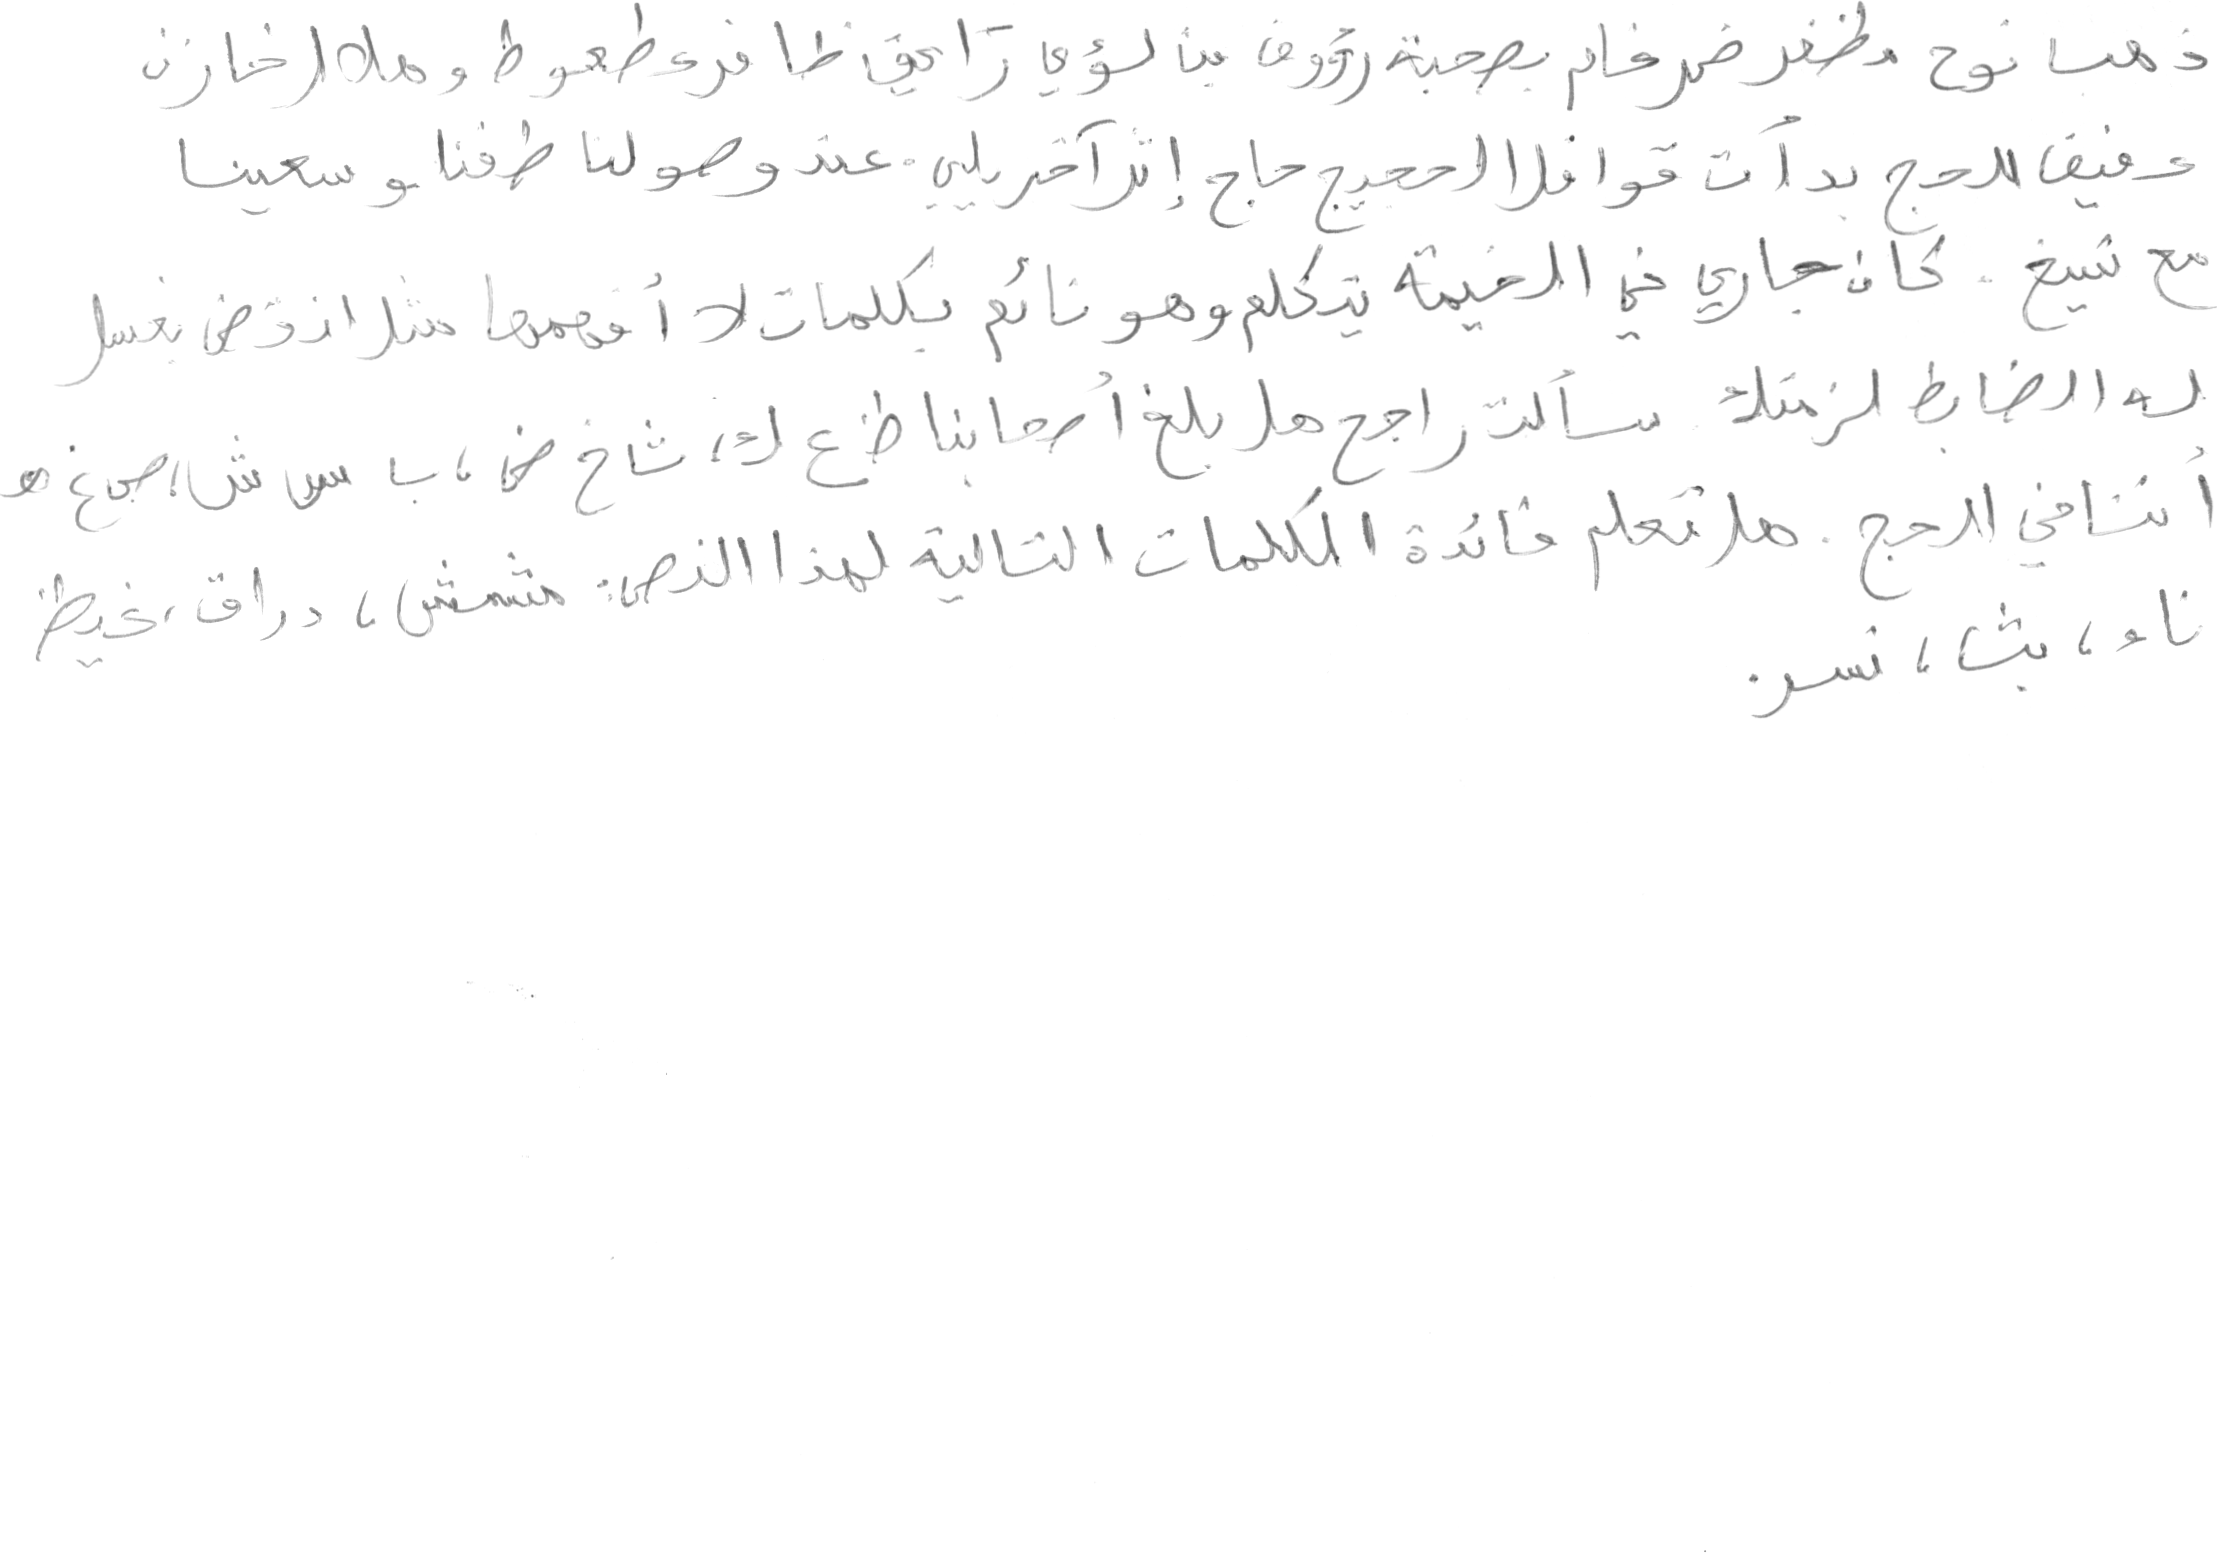 ذهب نوح مظفر ضرغام بصحبة رؤوف بن لؤي راجي ظافر عطعوط وهلال خازن
رفيق للحج بدأت قوافل الحجيج حاج إثر آخر يلبي. عند وصولنا طفنا وسعينا
مع شيخ. كان جاري في الخيمة يتكلم وهو نائم بكلمات لا أفهمها مثل انقض بغسل
له الضابط لزمتك. سألت راجح هل بلغ أصحابنا ظ ع ك، شاخ ض، ب س ش، ص غ هـ
أنتنا في الحج. هل تعلم فائدة الكلمات التالية لهذا النص: مشمش، دراق، غيظ
ناء، بث، نسر.